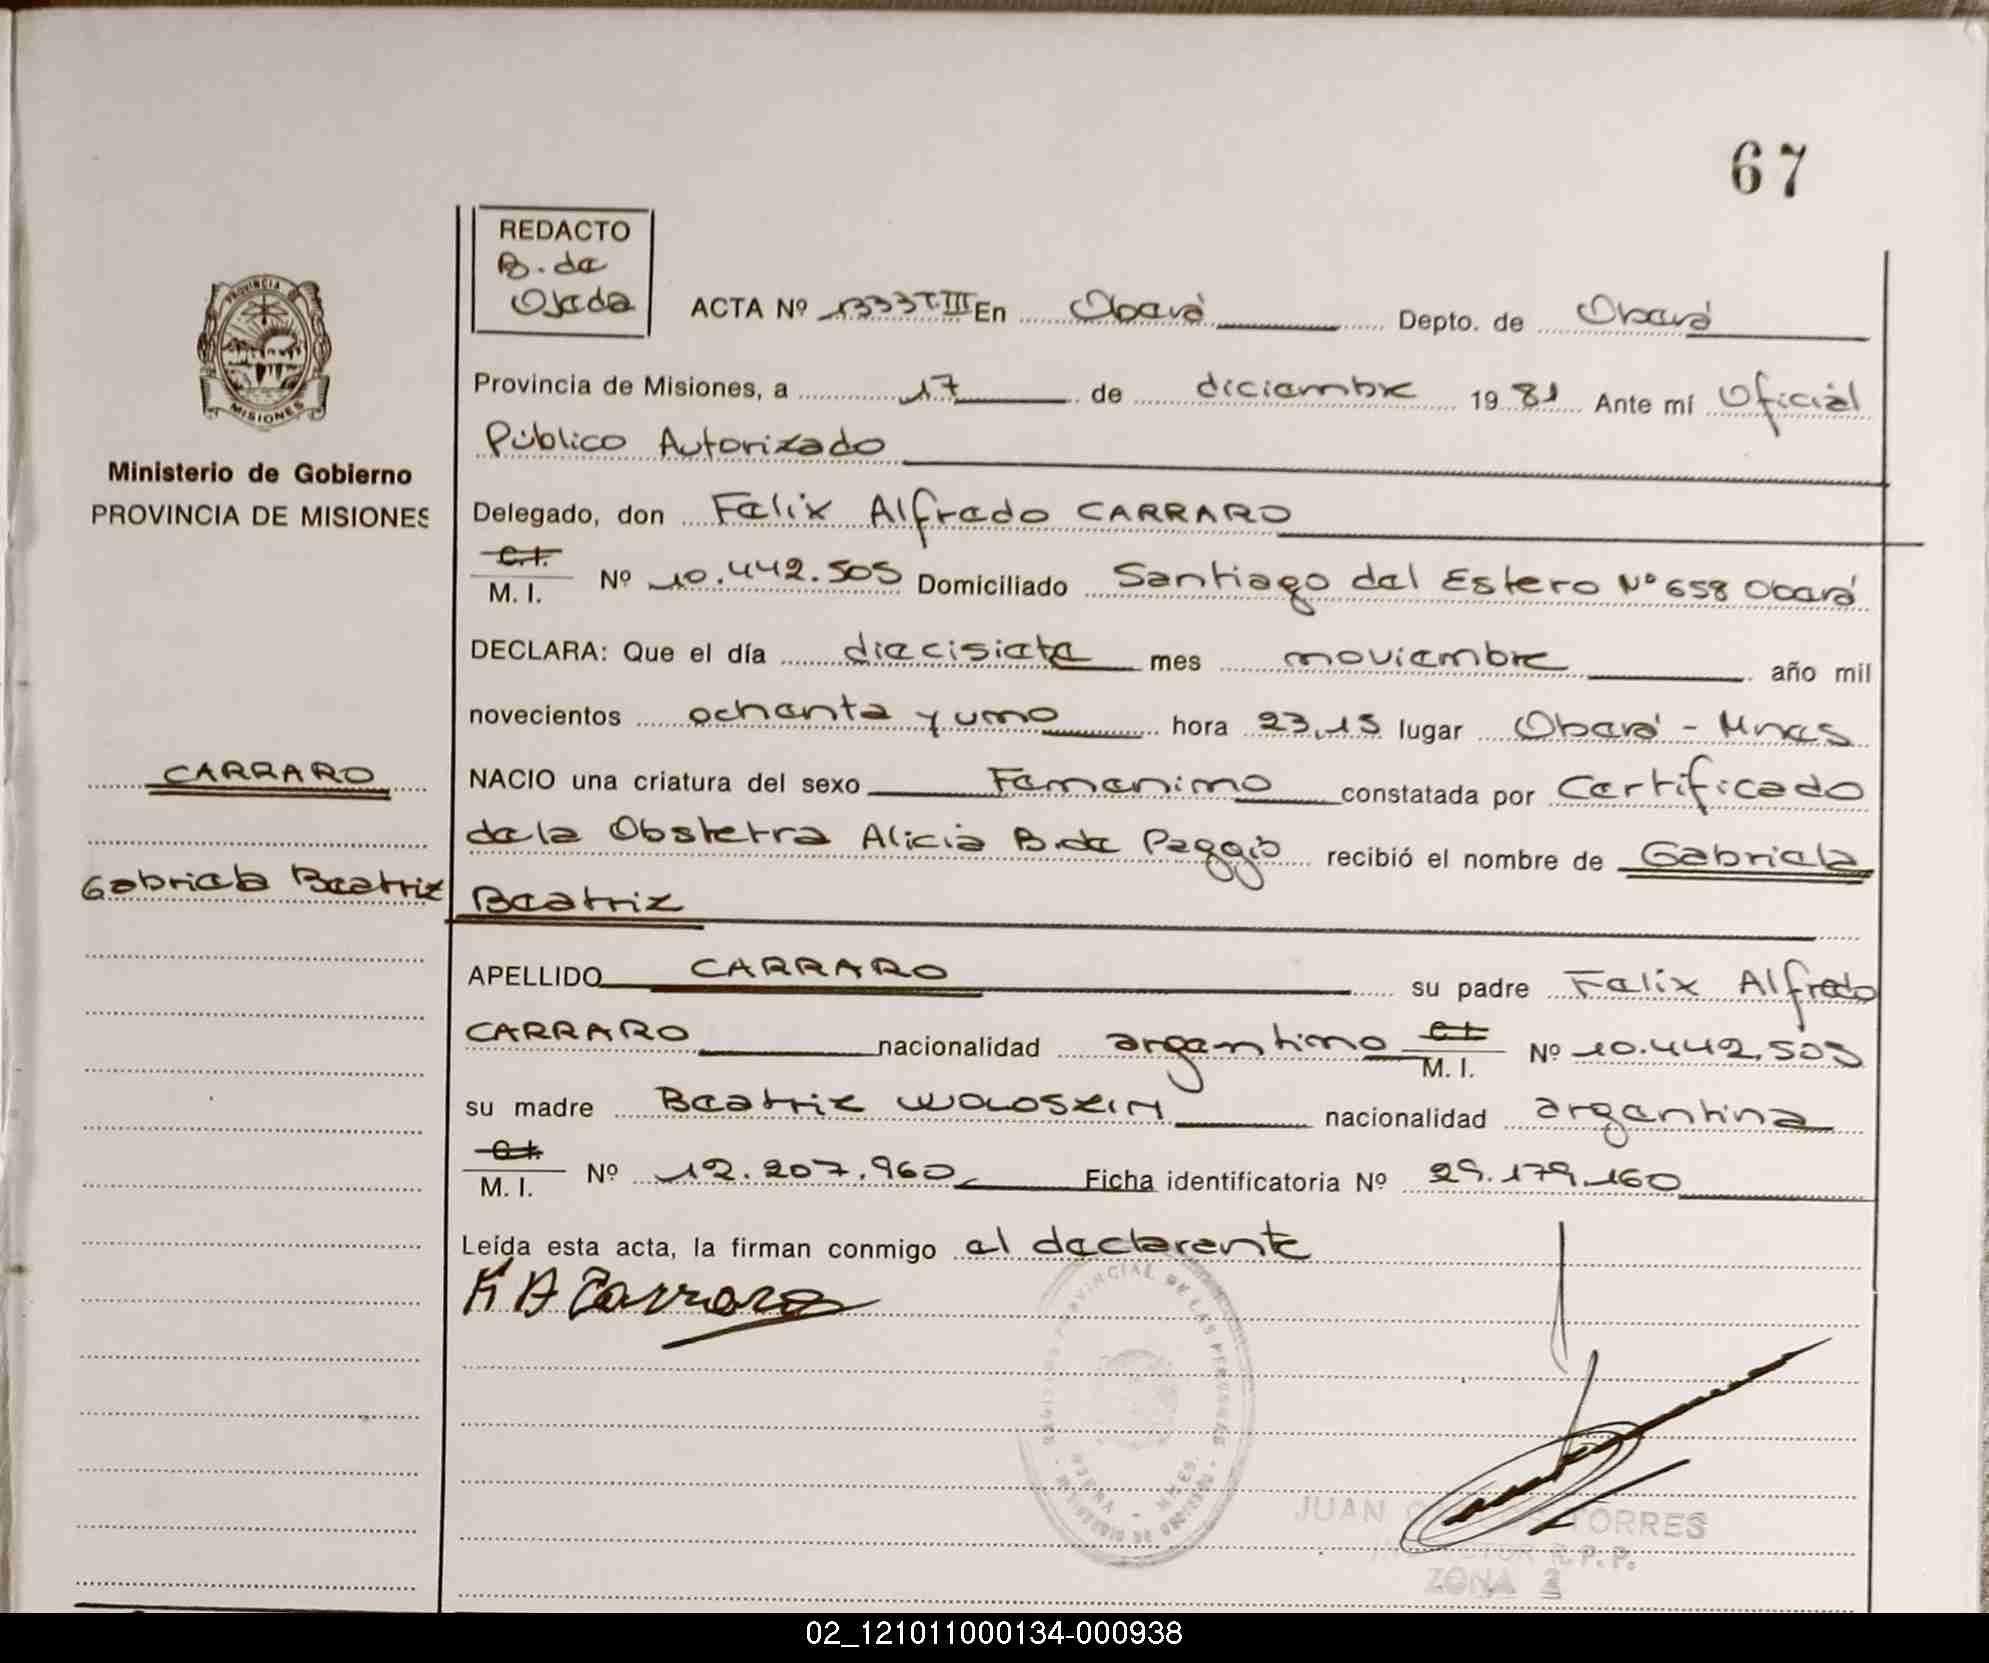 67
REDACTO
B. de
Ojeda
ACTA Nº 1333 T.III En Oberá Depto. de Oberá
PROVINCIA
MISIONES
Provincia de Misiones, a 17 de diciembre 1981 Ante mí Oficial
Público Autorizado
Ministerio de Gobierno
PROVINCIA DE MISIONES
Delegado, don Felix Alfredo CARRARO
C.I.
M. I. Nº 10.442.505 Domiciliado Santiago del Estero Nº 658 Oberá
DECLARA: Que el día diecisiete mes noviembre año mil
novecientos ochenta y uno hora 23,15 lugar Oberá - Mnes
CARRARO
NACIO una criatura del sexo Femenino constatada por Certificado
de la Obstetra Alicia B. de Peggio recibió el nombre de Gabriela
Gabriela Beatriz
Beatriz
APELLIDO CARRARO su padre Felix Alfredo
CARRARO nacionalidad argentino C.I. M. I. Nº 10.442.505
su madre Beatriz WOLOSZIN nacionalidad argentina
C.I.
M. I. Nº 12.207.960 Ficha identificatoria Nº 29.179.160
Leída esta acta, la firman conmigo el declarente
F A Carraro
PROVINCIAL DE LAS PERSONAS
JUAN TORRES
R.P.P.
ZONA 2
02_121011000134-000938